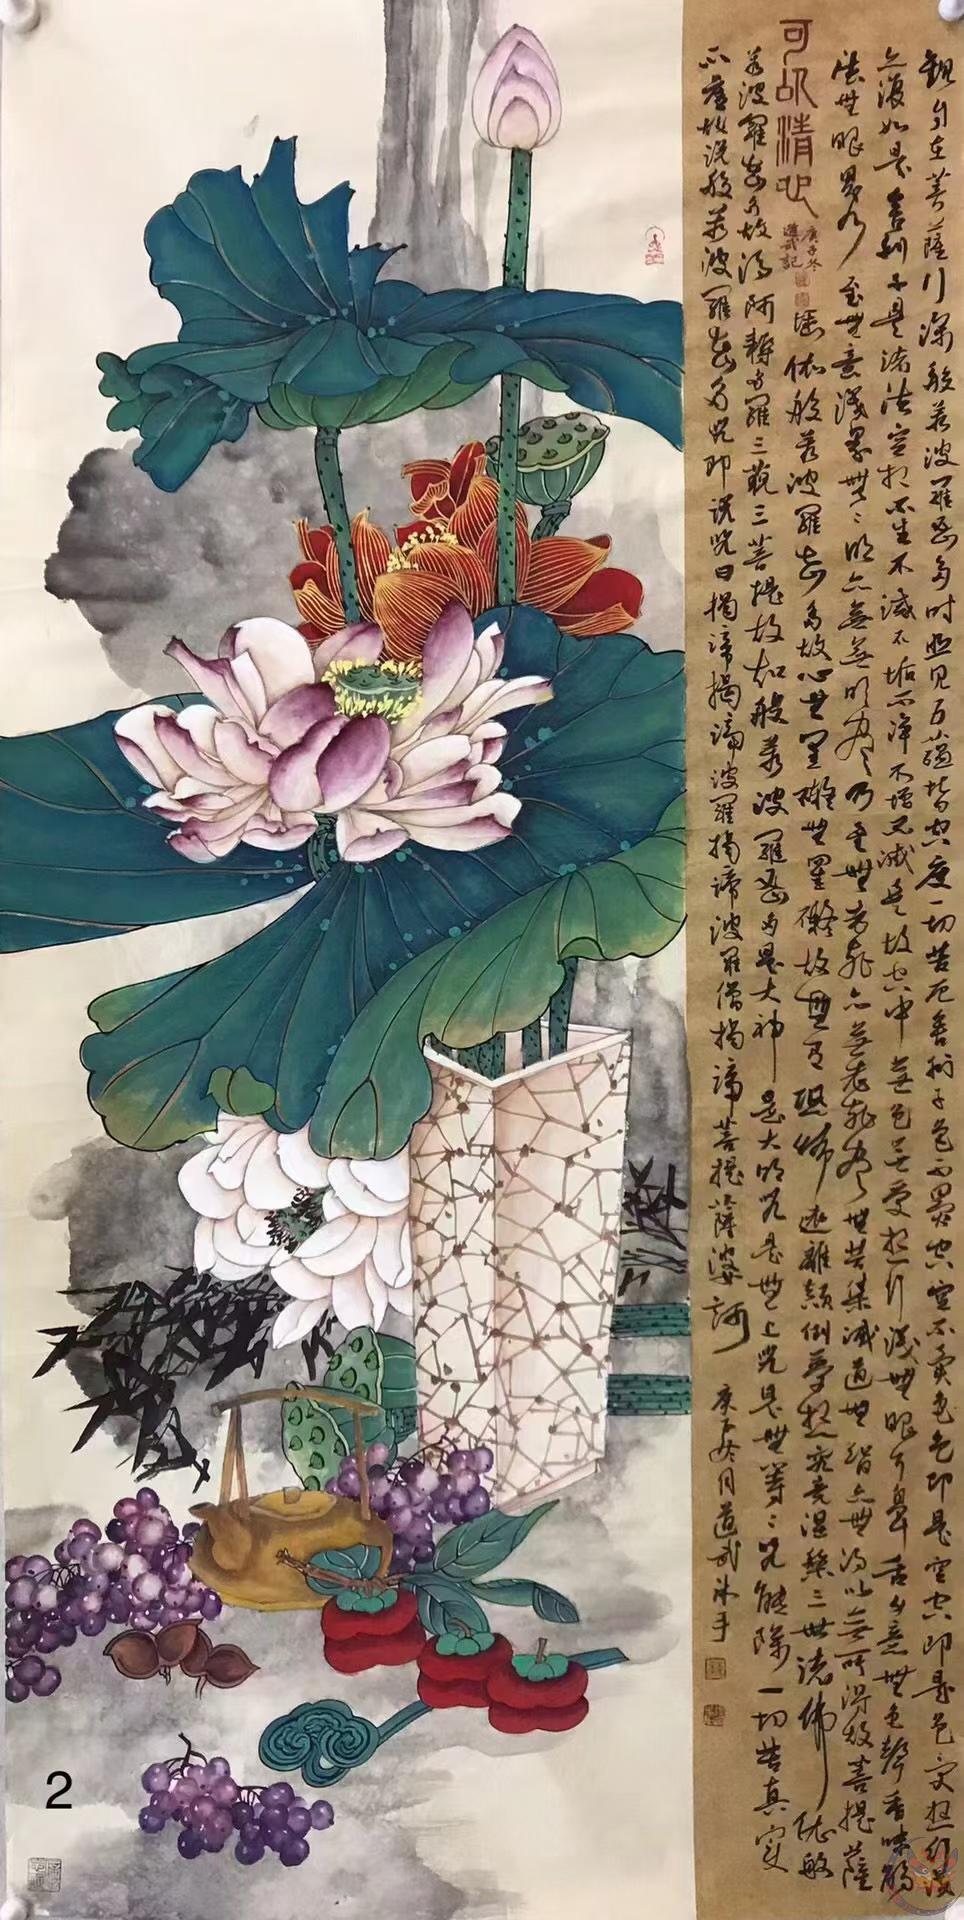 觀自在菩薩行深般若波羅蜜多時照見五蘊皆空度一切苦厄舍利子色不異空空不異色色即是空空即是色受想行識
亦復如是舍利子是諸法空相不生不滅不垢不淨不增不減是故空中無色無受想行識無眼耳鼻舌身意無色聲香味觸
法無眼界乃至無意識界無〻明亦無無明盡乃至無老死亦無老死盡無苦集滅道無智亦無得以無所得故菩提薩
可以清心
庚子冬
道武記
埵依般若波羅蜜多故心無罣礙無罣礙故無有恐怖遠離顛倒夢想究竟涅槃三世諸佛依般
若波羅蜜多故得阿耨多羅三藐三菩提故知般若波羅蜜多是大神咒是大明咒是無上咒是無等〻咒能除一切苦真實
不虛故說般若波羅蜜多咒即說咒曰揭諦揭諦波羅揭諦波羅僧揭諦菩提薩婆訶 庚子冬月道武沐手
2